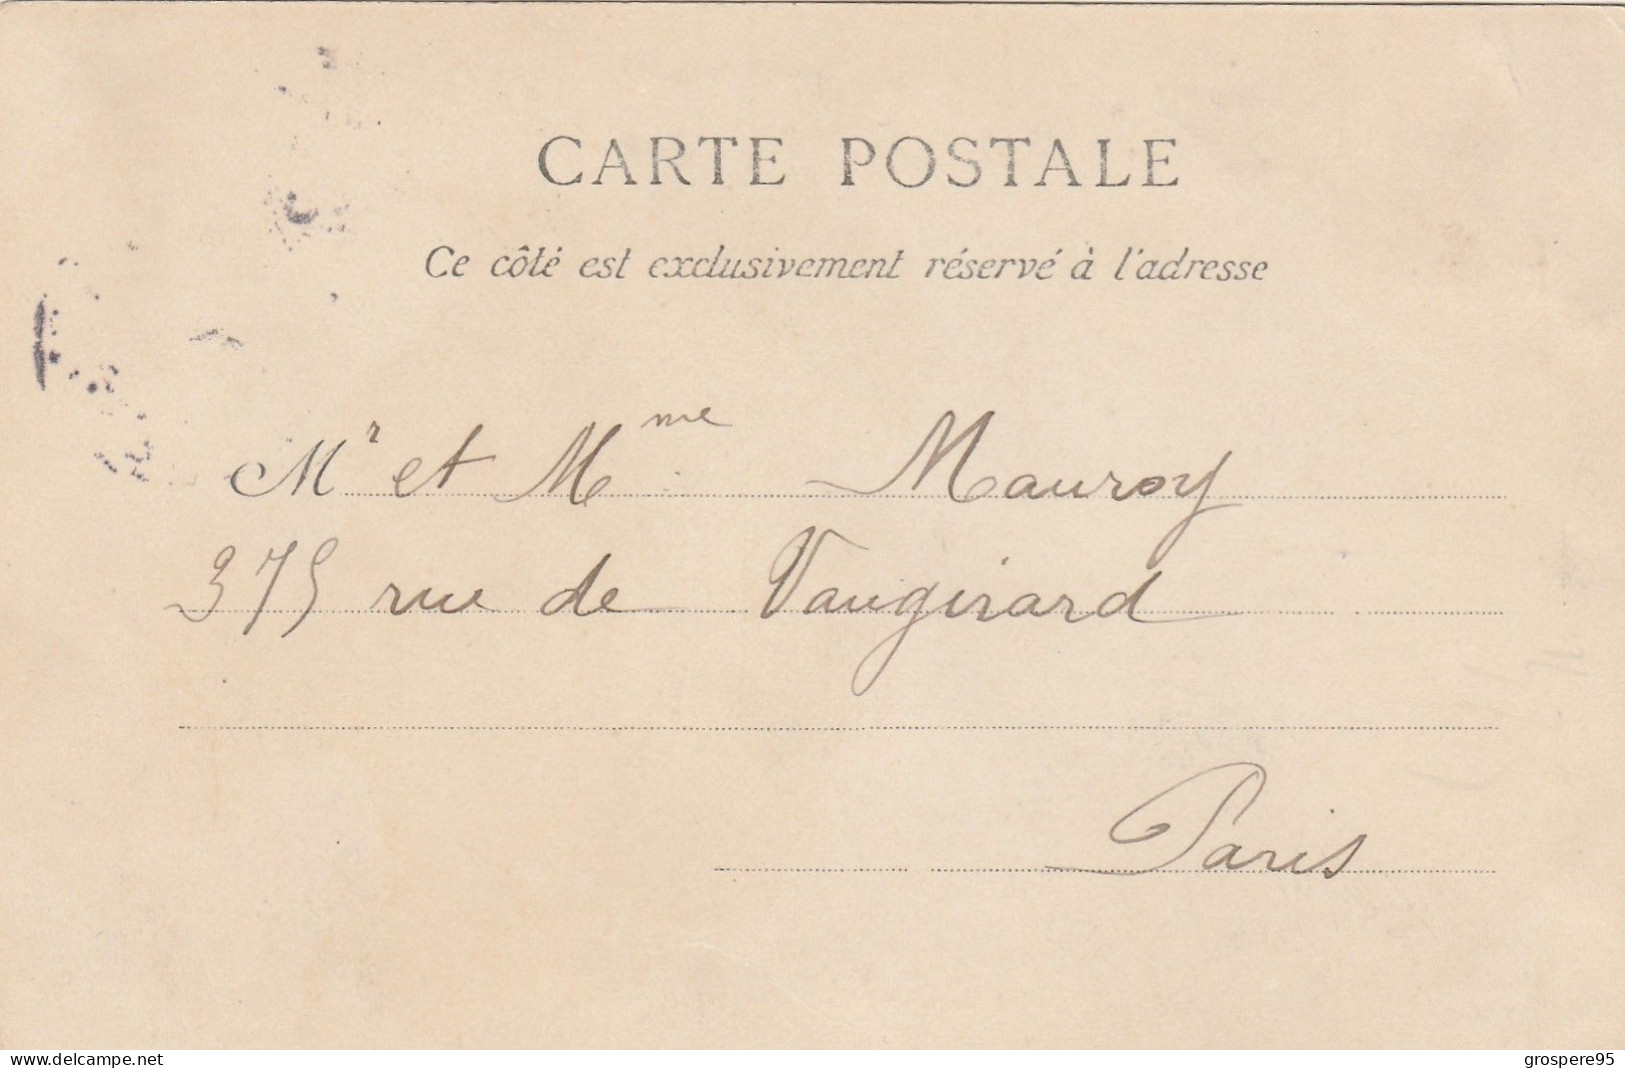 CARTE POSTALE
Ce côté est exclusivement réservé à l'adresse
Mr et Mme Mauroy
375 rue de Vaugirard
Paris
www.delcampe.net
grospere95